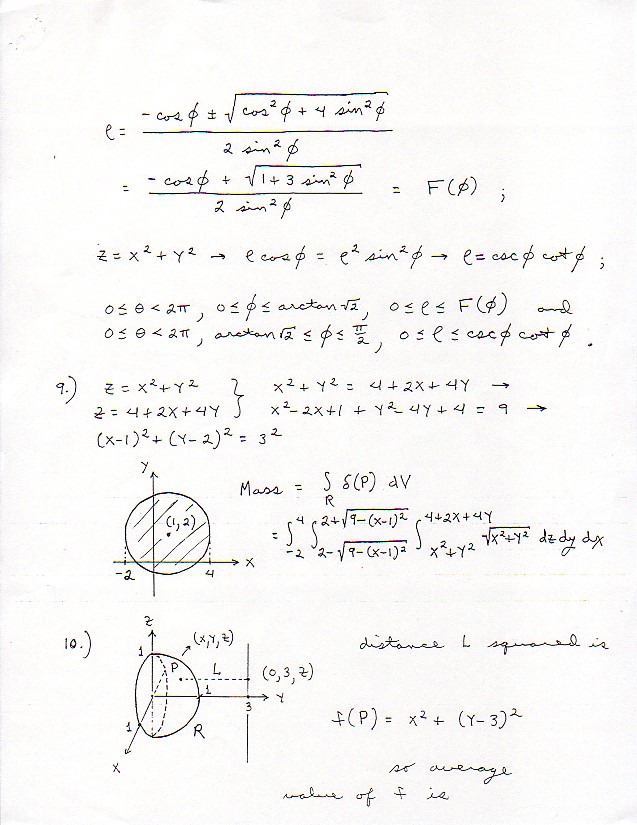 ρ = (-cos φ ± √(cos²φ + 4 sin²φ)) / (2 sin²φ)
= (-cos φ + √(1 + 3 sin²φ)) / (2 sin²φ) = F(φ) ;
Z = X² + Y² → ρ cos φ = ρ² sin²φ → ρ = csc φ cot φ ;
0 ≤ θ < 2π , 0 ≤ φ ≤ arctan √2 , 0 ≤ ρ ≤ F(φ) and
0 ≤ θ < 2π , arctan √2 ≤ φ ≤ π/2 , 0 ≤ ρ ≤ csc φ cot φ .
9.) Z = X² + Y² } X² + Y² = 4 + 2X + 4Y →
Z = 4 + 2X + 4Y } X² - 2X + 1 + Y² - 4Y + 4 = 9 →
(X-1)² + (Y-2)² = 3²
Y
(1,2)
X
-2 4
Mass = ∫_R δ(P) dV
= ∫_{-2}^{4} ∫_{2-√(9-(X-1)²)}^{2+√(9-(X-1)²)} ∫_{X²+Y²}^{4+2X+4Y} √(X²+Y²) dz dy dx
10.)
Z
1
P
(X,Y,Z)
L
(0,3,Z)
1
3
Y
1
R
X
distance L squared is
f(P) = X² + (Y-3)²
so average
value of f is